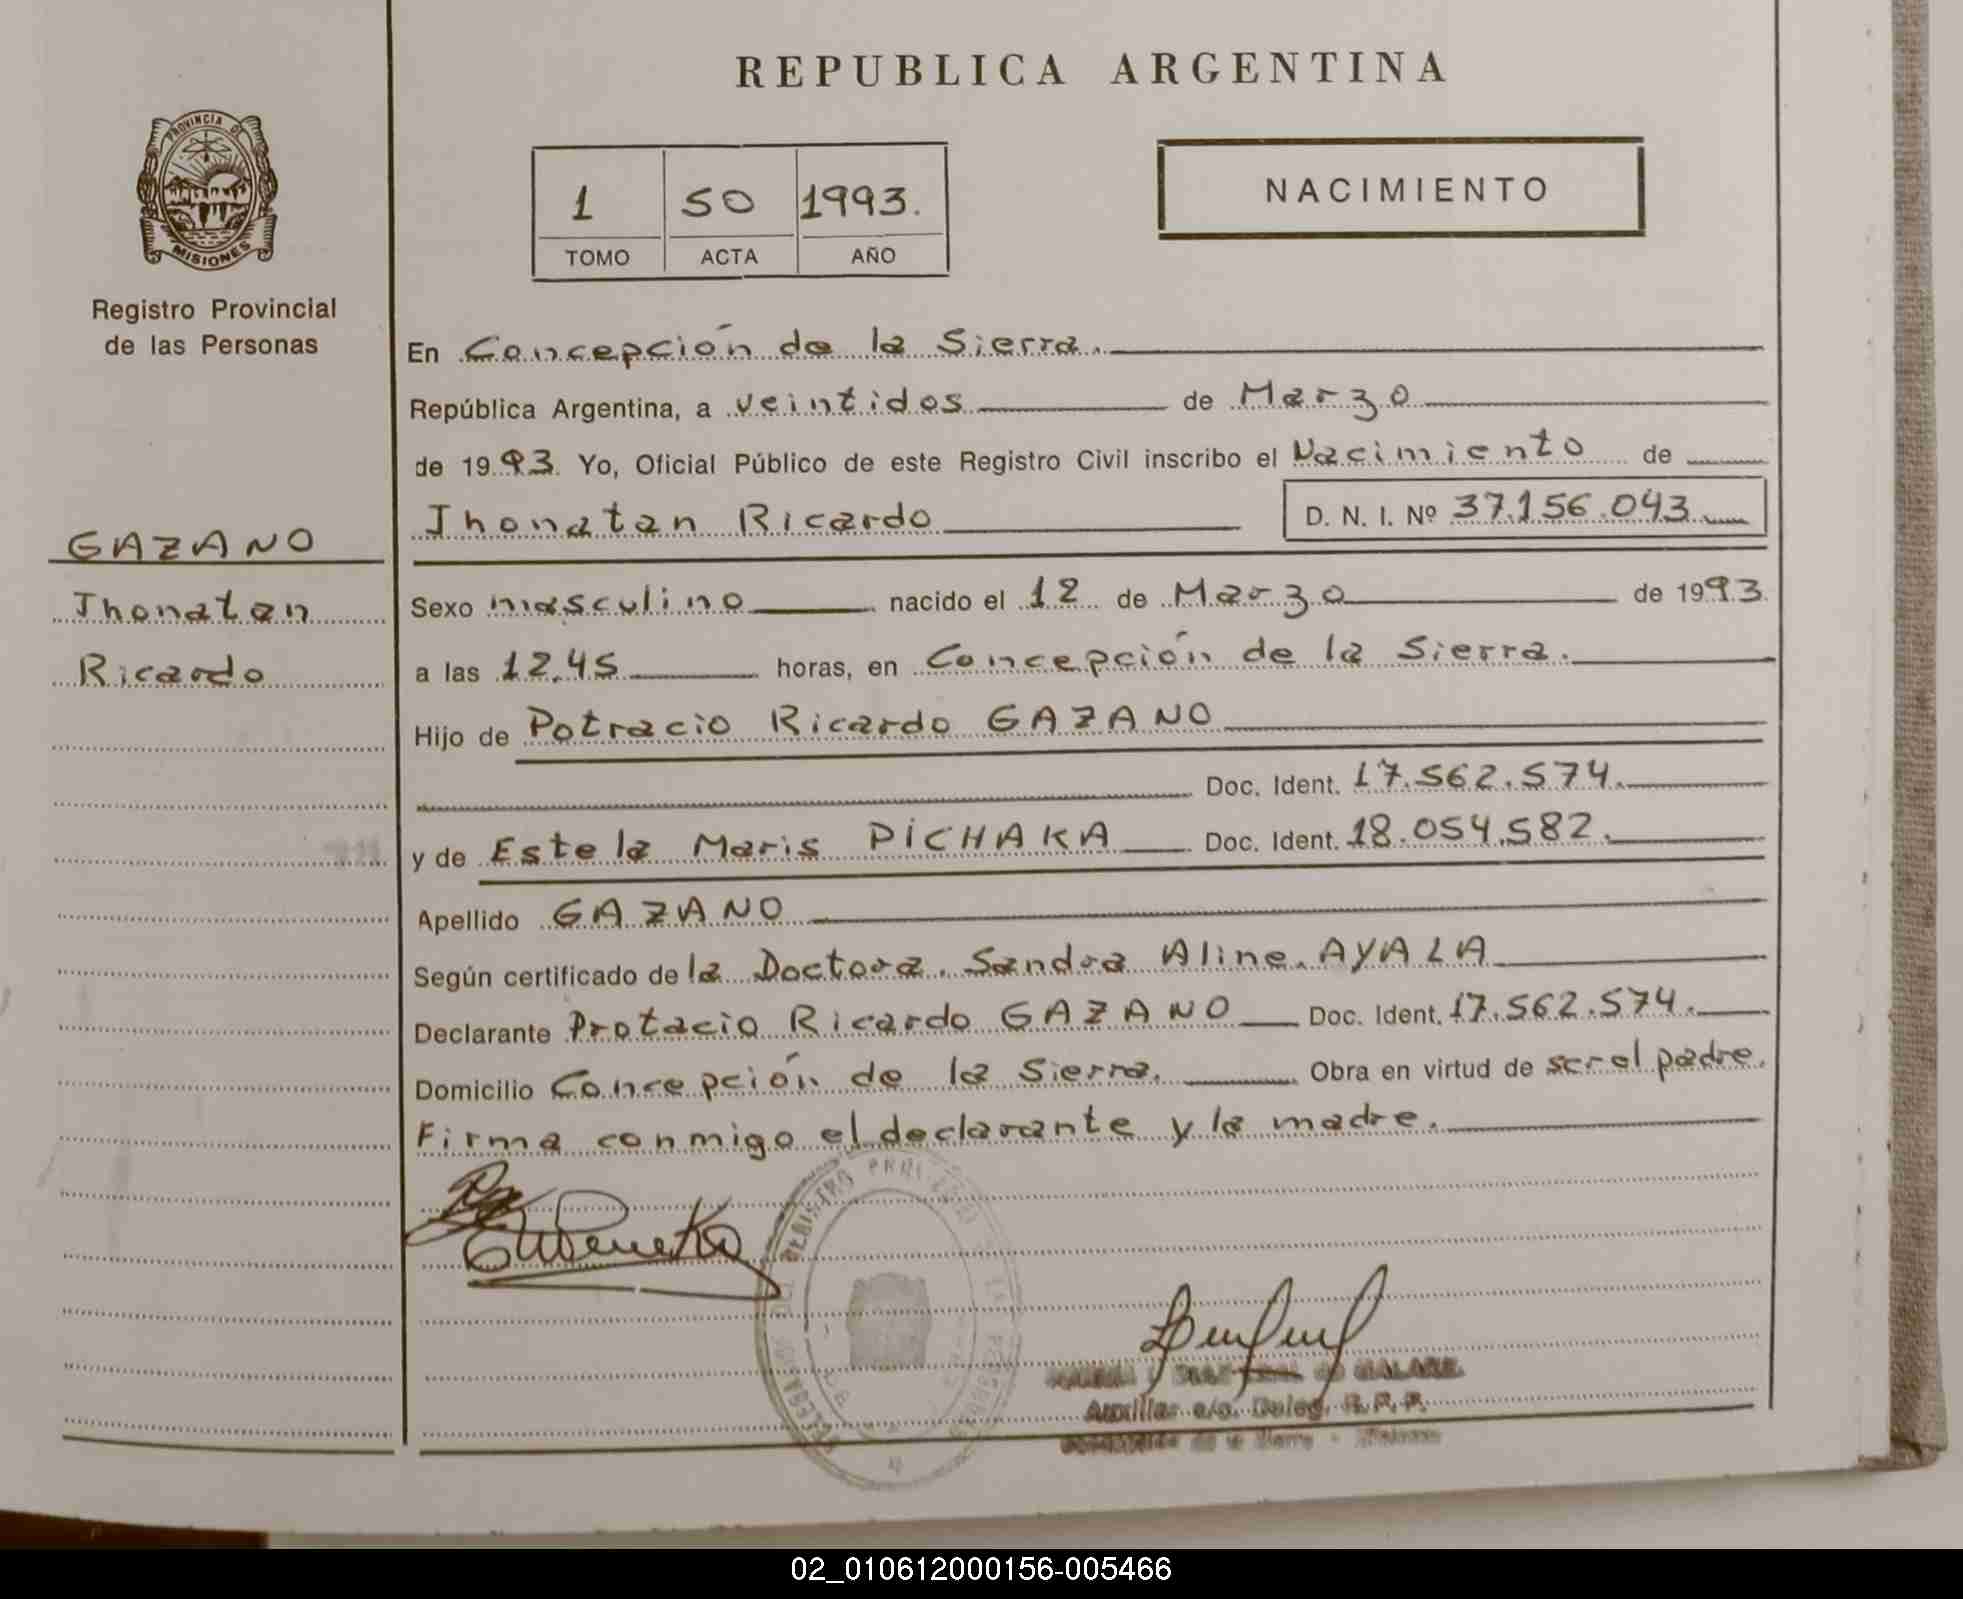 REPUBLICA ARGENTINA
PROVINCIA DE
MISIONES
Registro Provincial
de las Personas
1 50 1993.
TOMO ACTA AÑO
NACIMIENTO
GAZANO
Jhonatan
Ricardo
En Concepción de la Sierra.
República Argentina, a veintidos de Marzo
de 1993. Yo, Oficial Público de este Registro Civil inscribo el Nacimiento de
Jhonatan Ricardo D. N. I. Nº 37.156.043
Sexo masculino nacido el 12 de Marzo de 1993.
a las 12,45 horas, en Concepción de la Sierra.
Hijo de Potracio Ricardo GAZANO
Doc. Ident. 17.562.574.
y de Estela Maris PICHAKA Doc. Ident. 18.054.582.
Apellido GAZANO
Según certificado de la Doctora. Sandra Aline. AYALA
Declarante Protacio Ricardo GAZANO Doc. Ident. 17.562.574.
Domicilio Concepción de la Sierra. Obra en virtud de ser el padre.
Firma conmigo el declarante y la madre.
REGISTRO
Auxiliar a/c. Deleg. R.P.P.
02_010612000156-005466